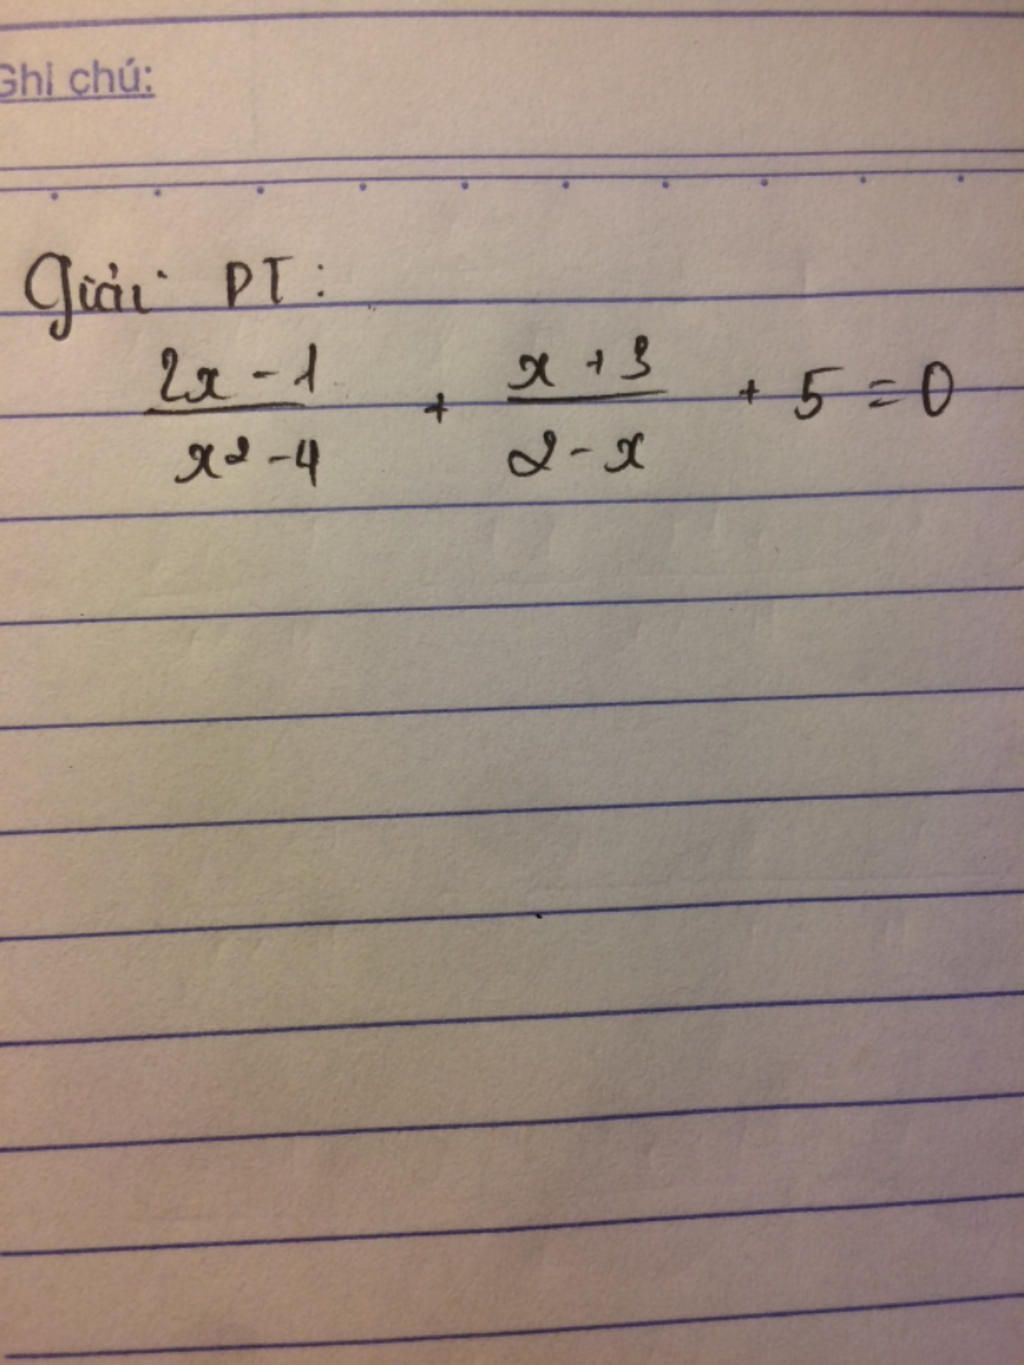 Ghi chú:
Giải PT:
2x - 1 / x² - 4 + x + 3 / 2 - x + 5 = 0